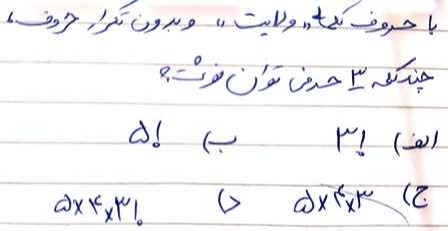 با حروف کلمهٔ «ولایت» و بدون تکرار حروف،
چند کلمه ۳ حرفی توان نوشت؟
الف) ۳!  ب) ۵!
ج) ۵×۴×۳  د) ۵×۴×۳!